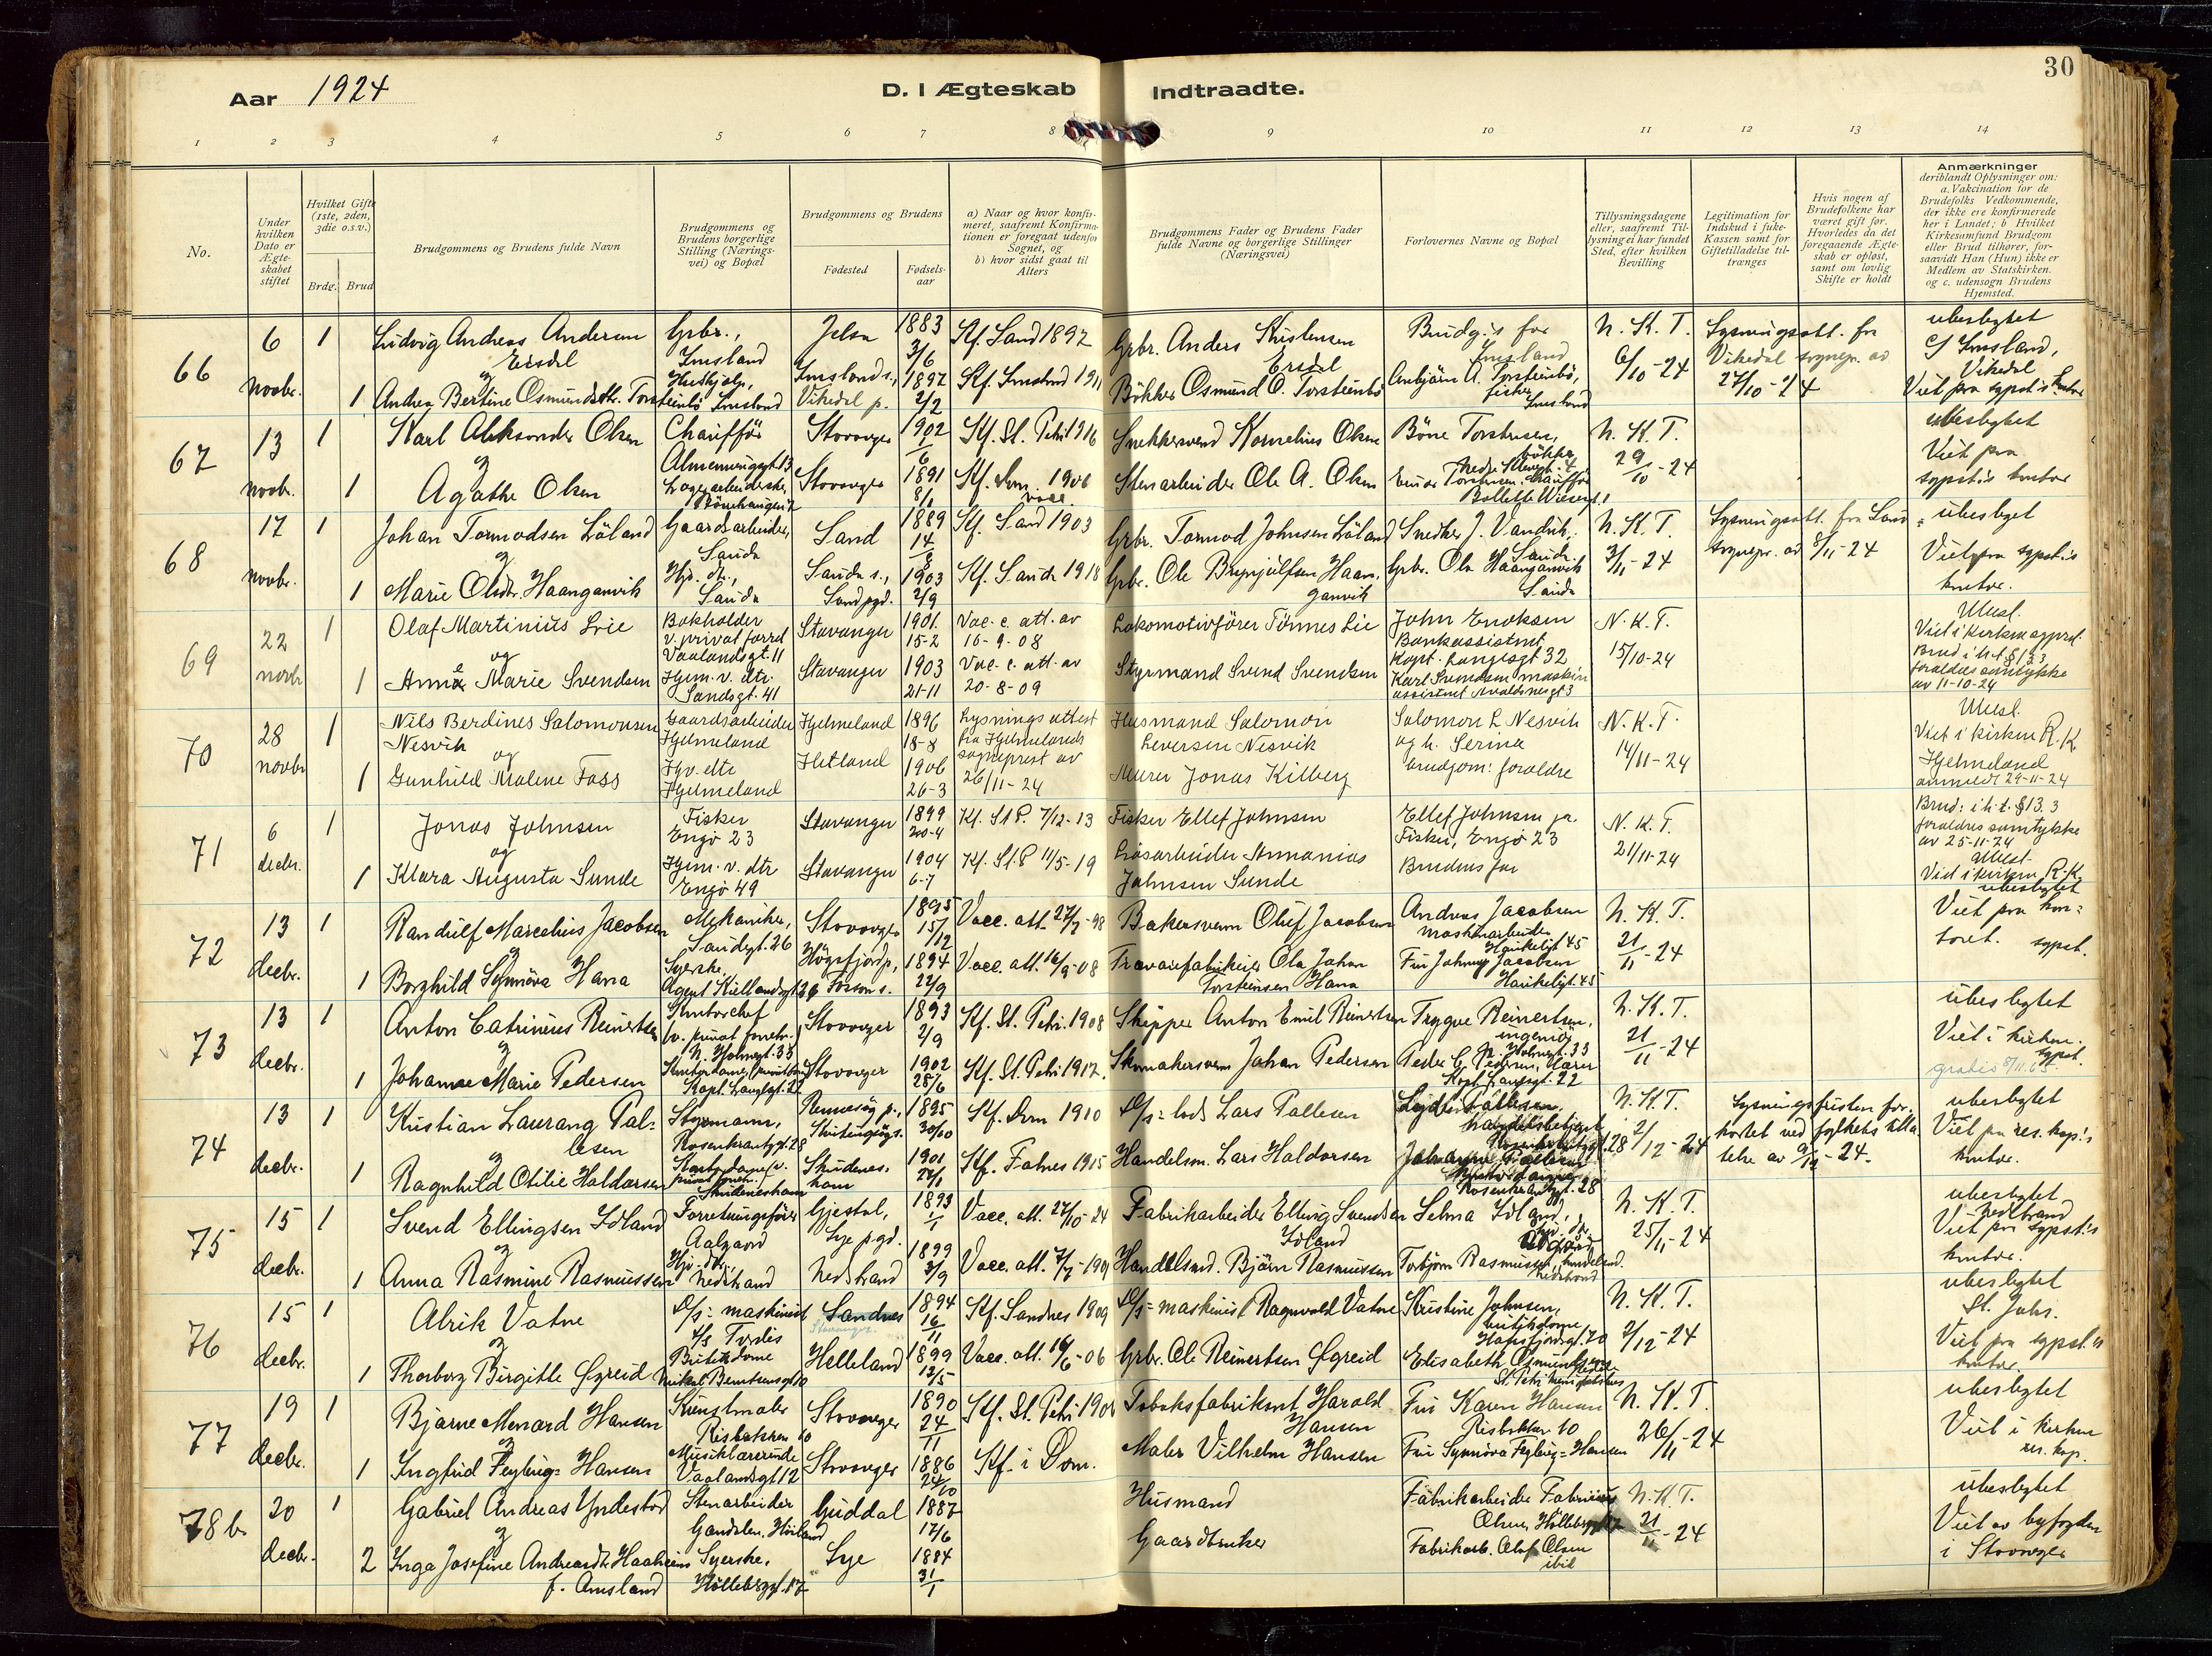 30
Aar 1924
D. I Ægteskab Indtraadte.
1 2 3 4 5 6 7 8 9 10 11 12 13 14
No.
Under hvilken Dato er Ægteskabet stiftet
Hvilket Gifte (1ste, 2den, 3die o.s.v.)
Brdg. Brud
Brudgommens og Brudens fulde Navn
Brudgommens og Brudens borgerlige Stilling (Næringsvei) og Bopæl
Brudgommens og Brudens
Fødested
Fødselsaar
a) Naar og hvor konfirmeret, saafremt Konfirmationen er foregaat udenfor Sognet, og
b) hvor sidst gaat til Alters
Brudgommens Fader og Brudens Fader fulde Navne og borgerlige Stillinger (Næringsvei)
Forlovernes Navne og Bopæl
Tillysningsdagene eller, saafremt Tillysning ei har fundet Sted, efter hvilken Bevilling
Legitimation for Indskud i fuke-Kassen samt for Giftetilladelse tiltrænges
Hvis nogen af Brudefolkene har været gift før. Hvorledes da det foregaaende Ægteskab er opløst, samt om lovlig Skifte er holdt
Anmærkninger
deriblandt Oplysninger om: a. Vakcination for de Brudefolks Vedkommende, der ikke ere konfirmerede her i Landet; b Hvilket Kirkesamfund Brudgom eller Brud tilhører, forsaavidt Han (Hun) ikke er Medlem av Statskirken. og c. udensogn Brudens Hjemsted.
66
6 novbr. 1
Ludvig Andreas Andersen Ersdal
Grbr., Imsland
Jelsa
1883 3/6
Kf. Sand 1897
Grbr. Anders Kristensen Ersdal
Brudg.s far Imsland
N. K. T. 6/10-24
Lysningsatt. fra Vikedal sognepr. av 27/10-24
ubeslegtet
c/ Imsland, Vikedal
Viet paa sgpst.s kontor
og
1 Andrea Bertine Osmundsdtr. Torsteinbö
Imsland
Imsland s., Vikedal p.
1897 2/2
Kf. Imsland 1911
Bökker Osmund O. Torsteinbö
Anbjörn A. Torsteinbö, fisker Imsland
67
13 novbr. 1
Karl Aleksander Olsen
Chaufför
Almenningsgt. 13
Stavanger
1902 1/6
Kf. St. Petri 1916
Snekkersvend Kornelius Olsen
Böre Torstensen, bökker
N. K. T. 29/10-24
ubeslegtet
Viet paa sgpst.s kontor
og
1 Agathe Olsen
Lagerarbeiderske,
Stavanger
1891 8/1
Kf. Dom. 1906
Stenarbeider Ole A. Olsen
68
17 novbr. 1
Johan Tormodsen Löland
Gaardsarbeider, Sauda
Sand
1889 14/8
Kf. Sand 1903
Grbr. Tormod Johnsen Löland
Snedker J. Vandvik, Sauda
N. K. T. 3/11-24
Lysningsatt. fra Sand sognepr. av 8/11-24
ubeslegtet
Viet paa sgpst.s kontor.
og
1 Marie Olsdtr. Haanganvik
Hjv. dtr., Sauda
Sauda s., Sand pgd.
1903 2/9
Kf. Sauda 1918
Grbr. Ole Brynjulfsen Haanganvik
Grbr. Ola Haanganvik Sauda
69
22 novbr 1
Olaf Martinius Lie
Bokholder v. privat forret
Vaalandsgt. 11
Stavanger
1901. 15-2
Vac. c. att. av 16-9-08
Lokomotivförer Tönnes Lie
John Enoksen Bankassistent Kapt. Langesgt 32
N. K. T. 15/10-24
Ubesl.
Viet i kirken sgprst.
Brud i h.t. § 13.3 foraldres samtykke av 11-10-24
og
1 Anna Marie Svendsen
Hjem. v. dtr. Sandsgt. 41
Stavanger
1903 21-11
Vac. c. att. av 20-8-09
Styrmand Svend Svendsen
Karl Svendsen maskin assistent Avaldsnesgt 3
70
28 novbr 1
Nils Berdines Salomonsen Nesvik
Gaardsarbeider Hjelmeland
Hjelmeland
1896 18-8
Lysningsattest fra Hjelmelands sogneprest av 26/11-24
Husmand Salomon Leversen Nesvik
Salomon L Nesvik og h. Serina brudgom: foraldre
N. K. T. 14/11-24
Ubesl.
Viet i kirken R. K.
Hjelmeland
anmeldt 29-11-24
og
1 Gunhild Malene Foss
Hjv. dtr Hjelmeland
Hetland
1906 26-3
Murer Jonas Kilberg
71
6 decbr. 1
Jonas Johnsen
Fisker Engö 23
Stavanger
1899 20-4
Kf. St P. 7/12-13
Fisker Ellef Johnsen
Ellef Johnsen jr. Fisker, Engö 23
N. K. T. 21/11-24
Brud: i h.t. § 13.3 foraldres samtykke av 25-11-24
Ubesl.
Viet i kirken R. K.
og
1 Klara Augusta Sunde
Hjem. v. dtr Engö 49
Stavanger
1904 6-7
Kf. St P 11/5-19
Lösarbeider Annanias Johnsen Sunde
Brudens far
72
13 decbr. 1
Randulf Marcelius Jacobsen
Mekaniker, Sandsgt. 26
Stavanger
1895 15/12
Vacc. att. 27/7-98
Bakersvenn Oluf Jacobsen
Andreas Jacobsen maskinarbeider Haukeligt 45
N. K. T. 21/11-24
ubeslegtet
Viet paa kontoret. sgpst.
og
1 Borghild Synnöva Hana
Syerske, Agent Kiellandsgt 26
Högsfjord p., Forsan s.
1894 22/9
Vacc. att. 16/9-08
Trævarefabrikeier Ola Johan Torsteinsen Hana
Fru Johanne Jacobsen Haukeligt. 45
73
13 decbr. 1
Anton Catrinius Reinertsen
Kontorchef (v. privat forretn.) N. Holmegt. 33
Stavanger
1893 2/9
Kf. St. Petri 1908
Skipper Anton Emil Reinertsen
Trygve Reinertsen, ingeniör N. Holmegt. 33
N. K. T. 21/11-24
ubeslegtet
Viet i kirken. sgpst.
og
1 Johanne Marie Pedersen
Kapt. Langesgt. 22
Stavanger
1902 28/6
Kf. St. Petri 1917.
Skomakersvenn Johan Pedersen
Peder C. Pedersen, Kapt. Langesgt. 22
74
13 decbr. 1
Kristian Laurang Pallesen
Styrmann, Rosenkrantzgt. 28
Rennesöy p., Kvitingsöy s.
1895 30/10
Kf. Dom 1910
D/s= lods Lars Pallesen
N. K. T. 2/12-24
Lysningsfristen forkortet ved fylkets tilladelse av 9/12-24.
ubeslegtet
Viet paa res. kap.s kontor.
og
1 Ragnhild Otilie Haldorsen
Kontordame (v. privat forretn.) Skudeneshavn
Skudeneshavn
1901 27/1
Kf. Falnes 1915
Handelsm. Lars Haldorsen
Rosenkrantzgt. 28
75
15 decbr. 1
Svend Ellingsen Idland
Forretningsförer Aalgaard
Gjestal, Lye pgd.
1893 1/1
Vacc. att. 27/10-24
Fabrikarbeider Elling Svendsen Idland
Selma Idland,
N. K. T. 25/11-24
ubeslegtet
Nedstrand
Viet paa sgpst.s kontor.
og
1 Anna Rasmine Rasmussen
Hjv. dtr., Nedstrand
Nedstrand
1899 3/9
Handelsmd. Björn Rasmussen
Torbjörn Rasmussen, handelsmd. Nedstrand
76
15 decbr. 1
Alrik Vatne
D/s= maskinist
Sandnes
Stavanger.
1894 16/11
Kf. Sandnes 1909
D/s= maskinist Ragnvald Vatne
Kristine Johnsen, Hafrsfjordsgt. 70
N. K. T. 2/12-24
ubeslegtet
St. Joh.
Viet paa sgpst.s kontor.
og
1 Thorborg Birgitte Øgreid
Butikdame
Helleland
1899 13/5
Vacc. att. 16/6-06
Grbr. Ole Reinertsen Øgreid
Elisabeth
77
19 decbr. 1
Bjarne Menard Hansen
Kunstmaler Risbakken 10
Stavanger
1890 24/11
Kf. St. Petri
Tobaksfabrikant Harald Hansen
Fru Karen Hansen Risbakken 10
N. K. T. 26/11-24
ubeslegtet
Viet i kirken res. kap.
og
1 Ingfrid Feyling=Hansen
Musiklærerinde Vaalandsgt 12
Stavanger
1886 24/10
Kf. i Dom.
Maler Vilhelm Hansen
Fru Synnöva Feyling=Hansen
78b.
20 decbr. 1
Gabriel Andreas Yndestad
Stenarbeider Gandalen, Höiland
Guddal
1887 17/6
Husmand
Fabrikarbeider Fabrius Olsen,
N. K. T. 21/11-24
ubeslegtet
Viet av byfogden i Stavanger
og
2 Inga Josefine Andreasdtr Haaheim f. Amsland
Syerske,
Lye
1884 31/1
Gaardbruker
Fabrikarb. Olaf Olsen ibid